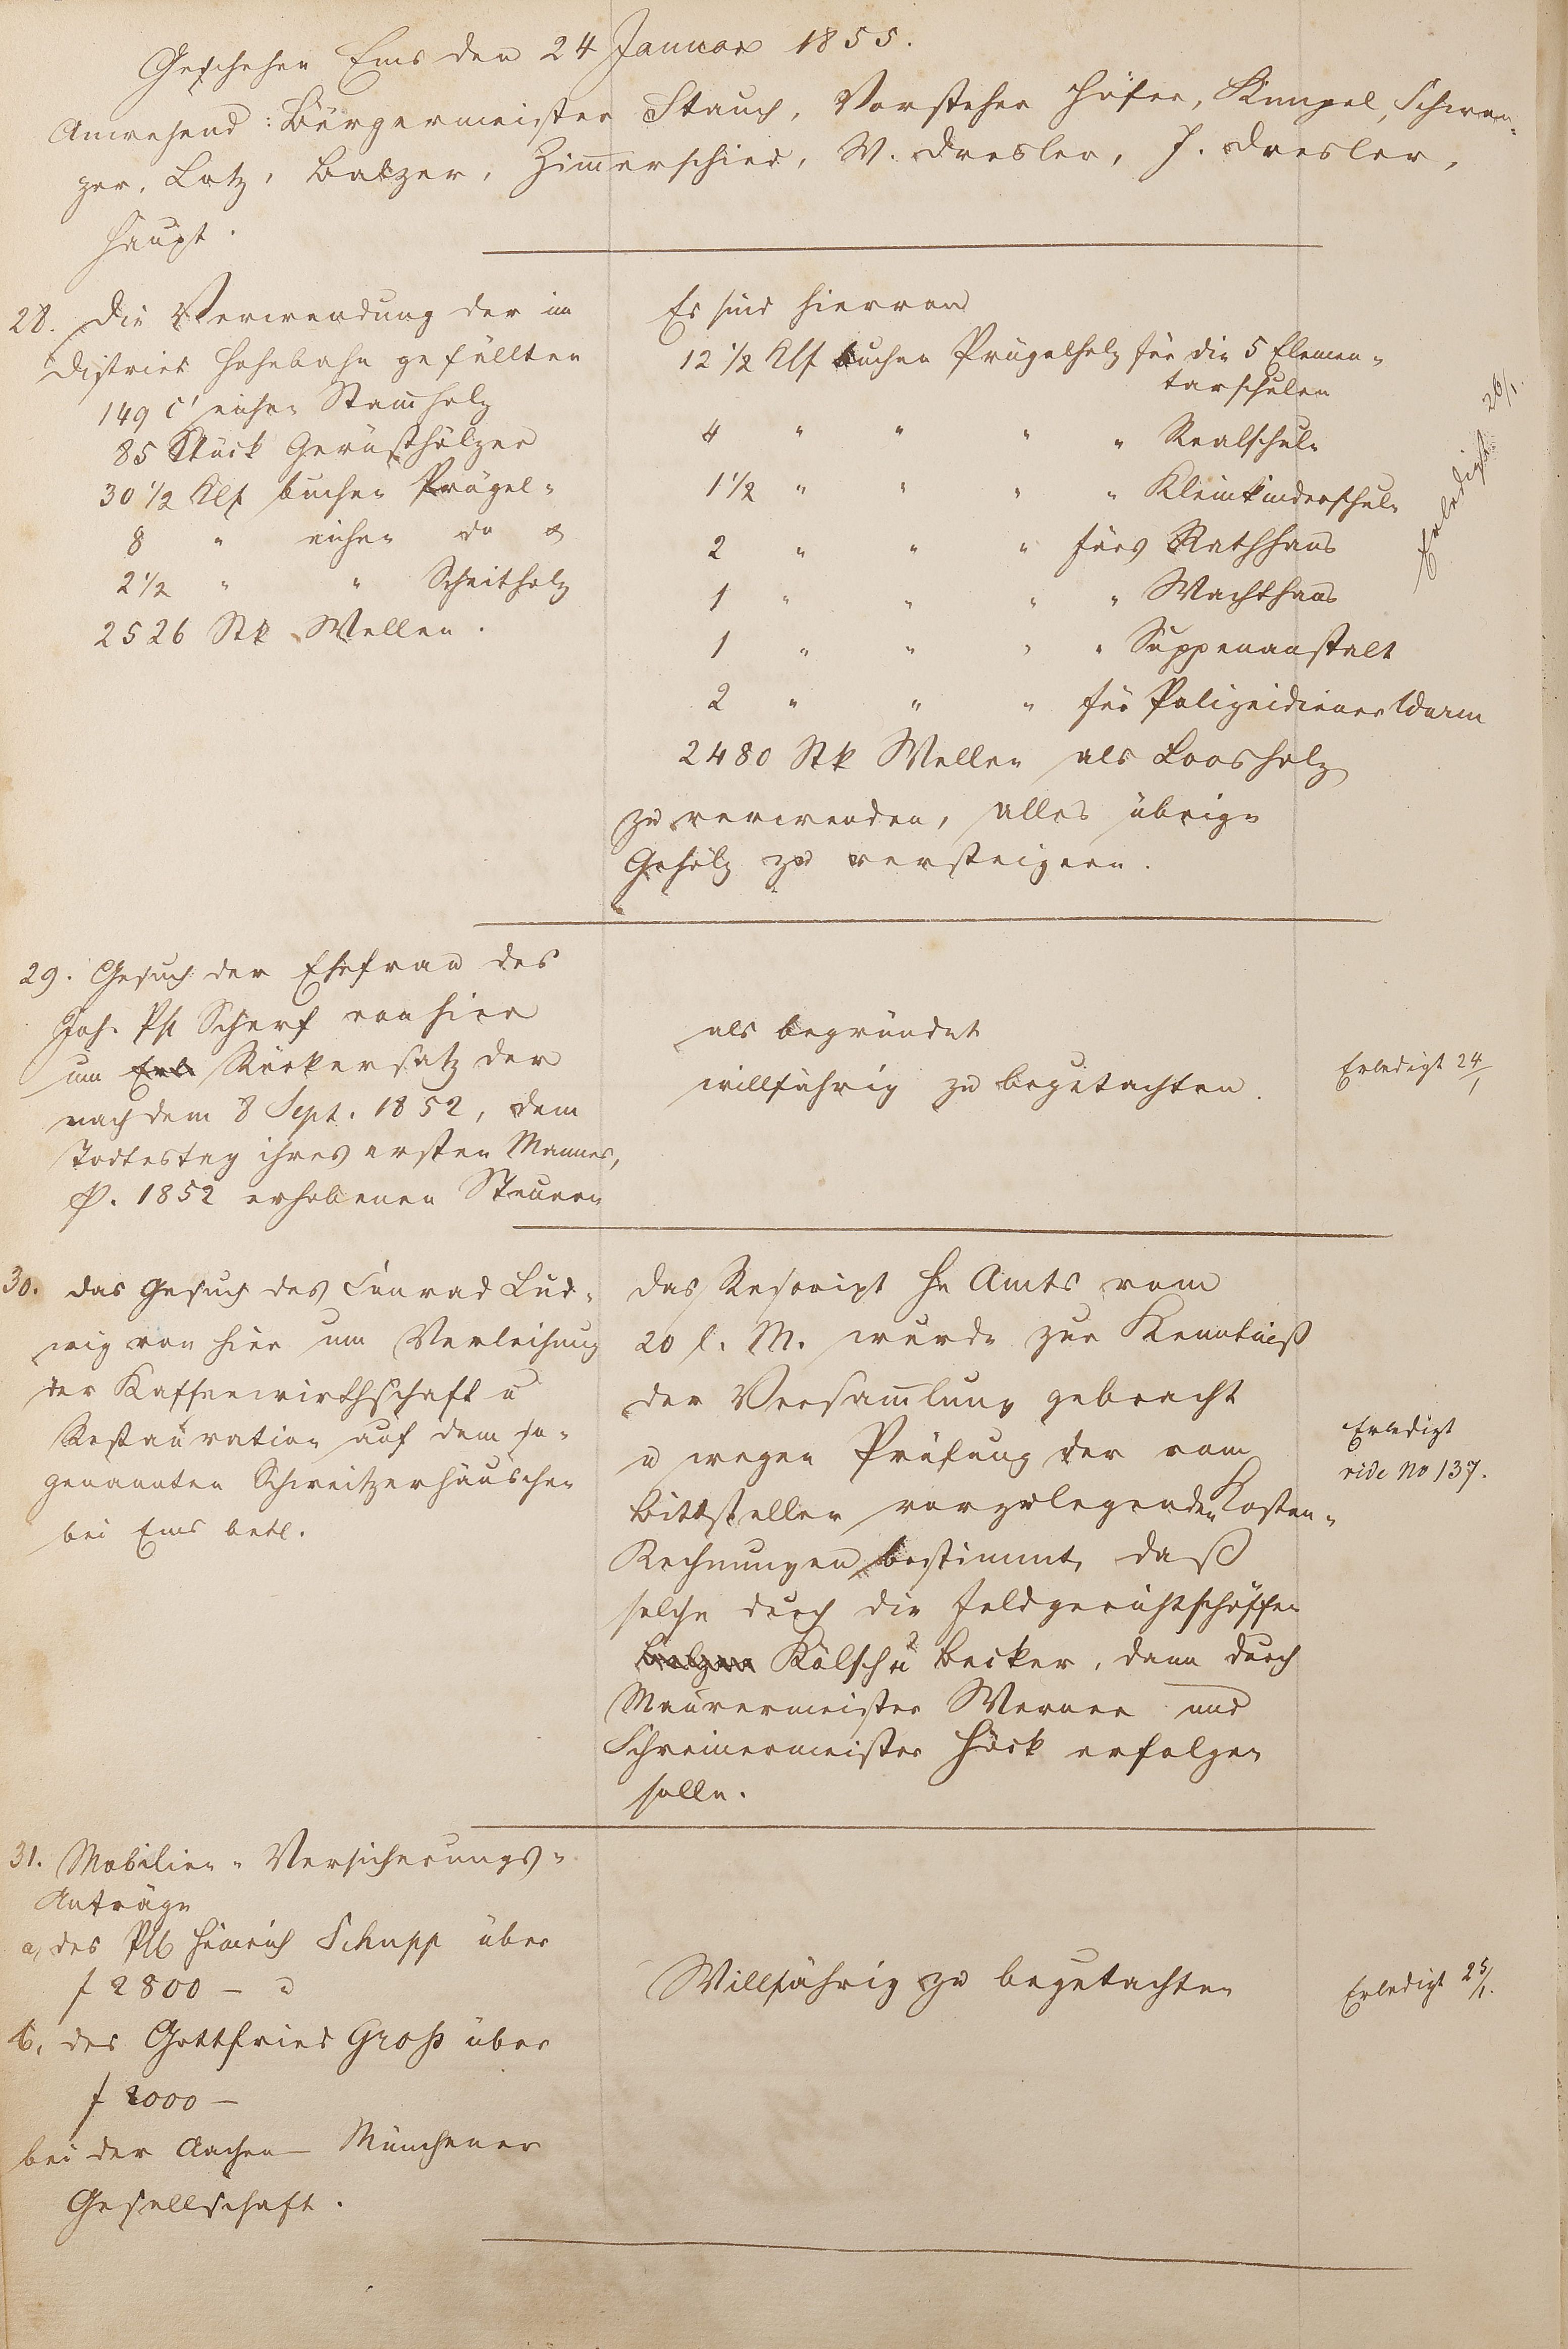 Geschehen Ems den 24 Januar 1855.
Anwesend: Bürgermeister Stauch, Vorsteher Höfer, Kimpel, Schwen-
zer, Lotz, Balzer, Zim̄erschied, W. Dresler, J. Dresler,
Haupt.
28. Die Verwendung der im
District Hohebahn gefällten
149 C' eichen Stam̄holz
85 Stück Gerüsthölzer
30 1/2 Klf buchen Prügel-
8 " eichen do
2 1/2 " " Scheitholz
2526 Stk Wellen.
Es sind hiervon
12 1/2 Klf buchen Prügelholz für die 5 Elemen-
tarschulen
4 " " " " Realschule
1 1/2 " " " " Kleinkinderschule
2 " " " fürs Rathhaus
1 " " " " Wachthaus
1 " " " " Suppenanstalt
2 " " " für Polizeidiener Wurm
2480 Stk Wellen als Loosholz
zu verwenden, alles übrige
Gehölz zu versteigern.
Erledigt 26/1.
29. Gesuch der Ehefrau des
Joh. Ph Scherf von hier
um Erl Rückersatz der
nach dem 8 Sept. 1852, dem
Todtestag ihres ersten Mannes,
p. 1852 erhobenen Steuern
als begründet
willfährig zu begutachten.
Erledigt 24/1
30. Das Gesuch des Conrad Lud-
wig von hier um Verleihung
der Kaffeewirthschaft u
Restauration auf dem so-
genannten Schweitzerhäuschen
bei Ems betl.
Das Rescript Hr Amts vom
20 l. M. wurde zur Kenntniß
der Versam̄lung gebracht
u wegen Prüfung der vom
Bittsteller vorzulegenden Kosten-
Rechnungen bestimmt, daß
solche durch die Feldgerichtschöffen
Balzer Kölsch u Becker, dann durch
Maurermeister Werner und
Schreinermeister Höck erfolgen
solle.
Erledigt
vide No 137.
31. Mobilien-Versicherungs-
Anträge
a, des Ph Heinrich Schupp über
f 2800 – u
b, des Gottfried Groß über
f 2000 –
bei der Aachen – Münchener
Gesellschaft.
Willfährig zu begutachten
Erledigt 25/1.